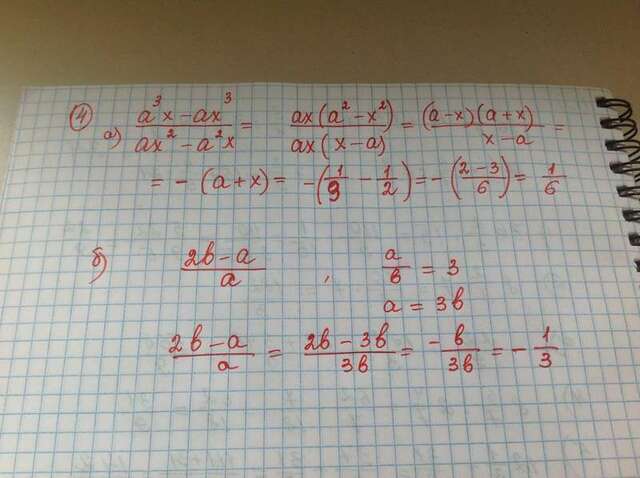 ④ а) (a³x − ax³)/(ax² − a²x) = ax(a² − x²)/ax(x − a) = (a−x)(a+x)/(x−a) =
= − (a+x) = −(1/9 − 1/2) = −((2−3)/6) = 1/6
б) (2b − a)/a , a/b = 3
a = 3b
(2b − a)/a = (2b − 3b)/3b = −b/3b = − 1/3